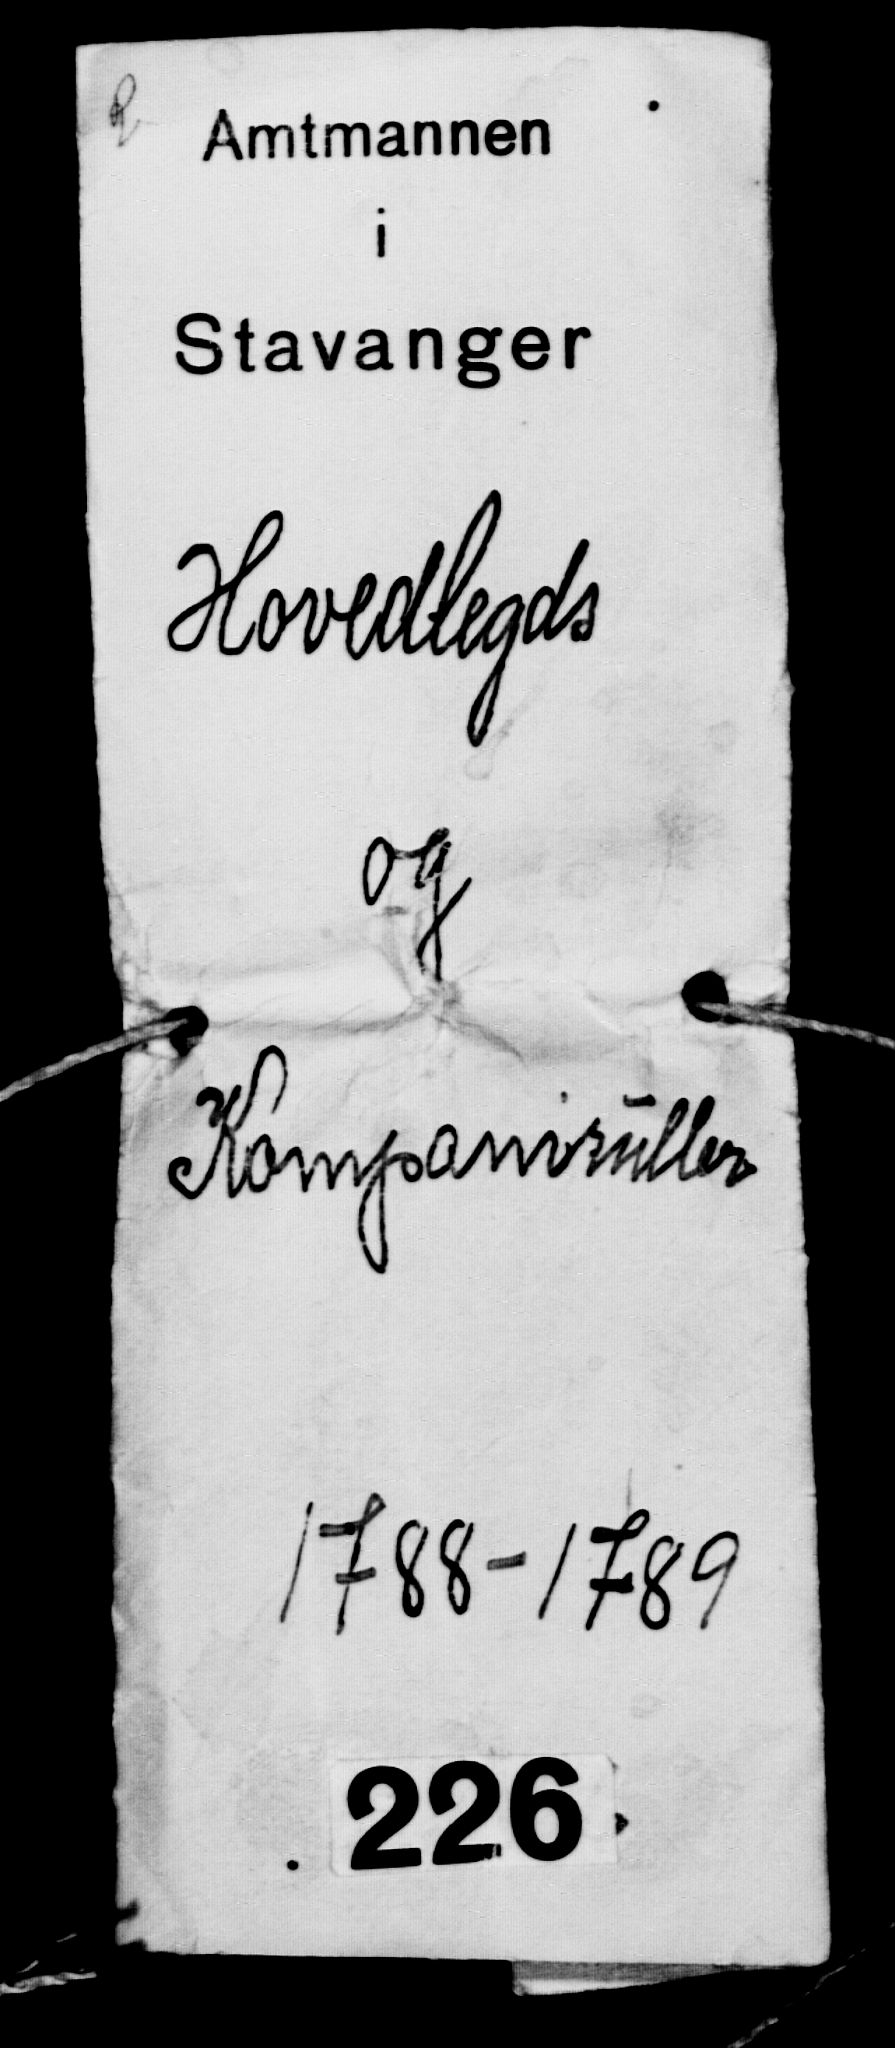 Amtmannen
i
Stavanger
Hovedlegds
og
Kompanirŭller
1788-1789
226